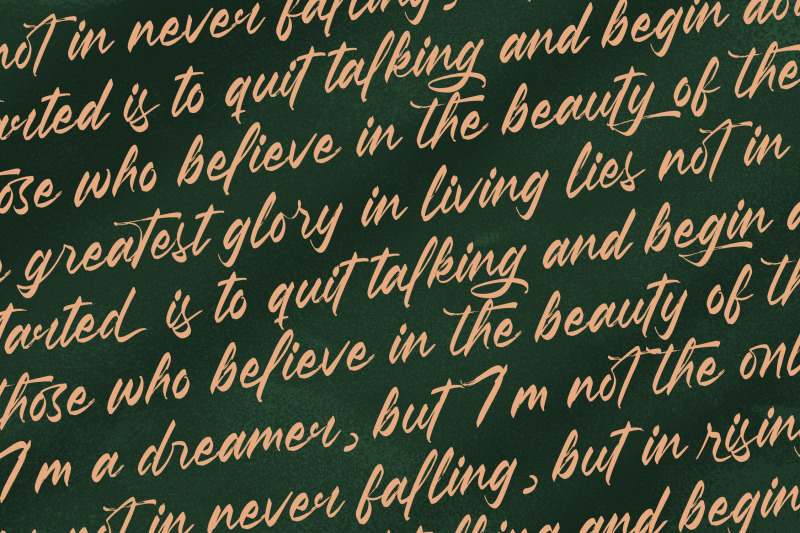 not in never falling,
started is to quit talking and begin doi
those who believe in the beauty of the
greatest glory in living lies not in
tarted is to quit talking and begin
those who believe in the beauty of th
I'm a dreamer, but I'm not the onl
not in never falling, but in rising
talking and begin